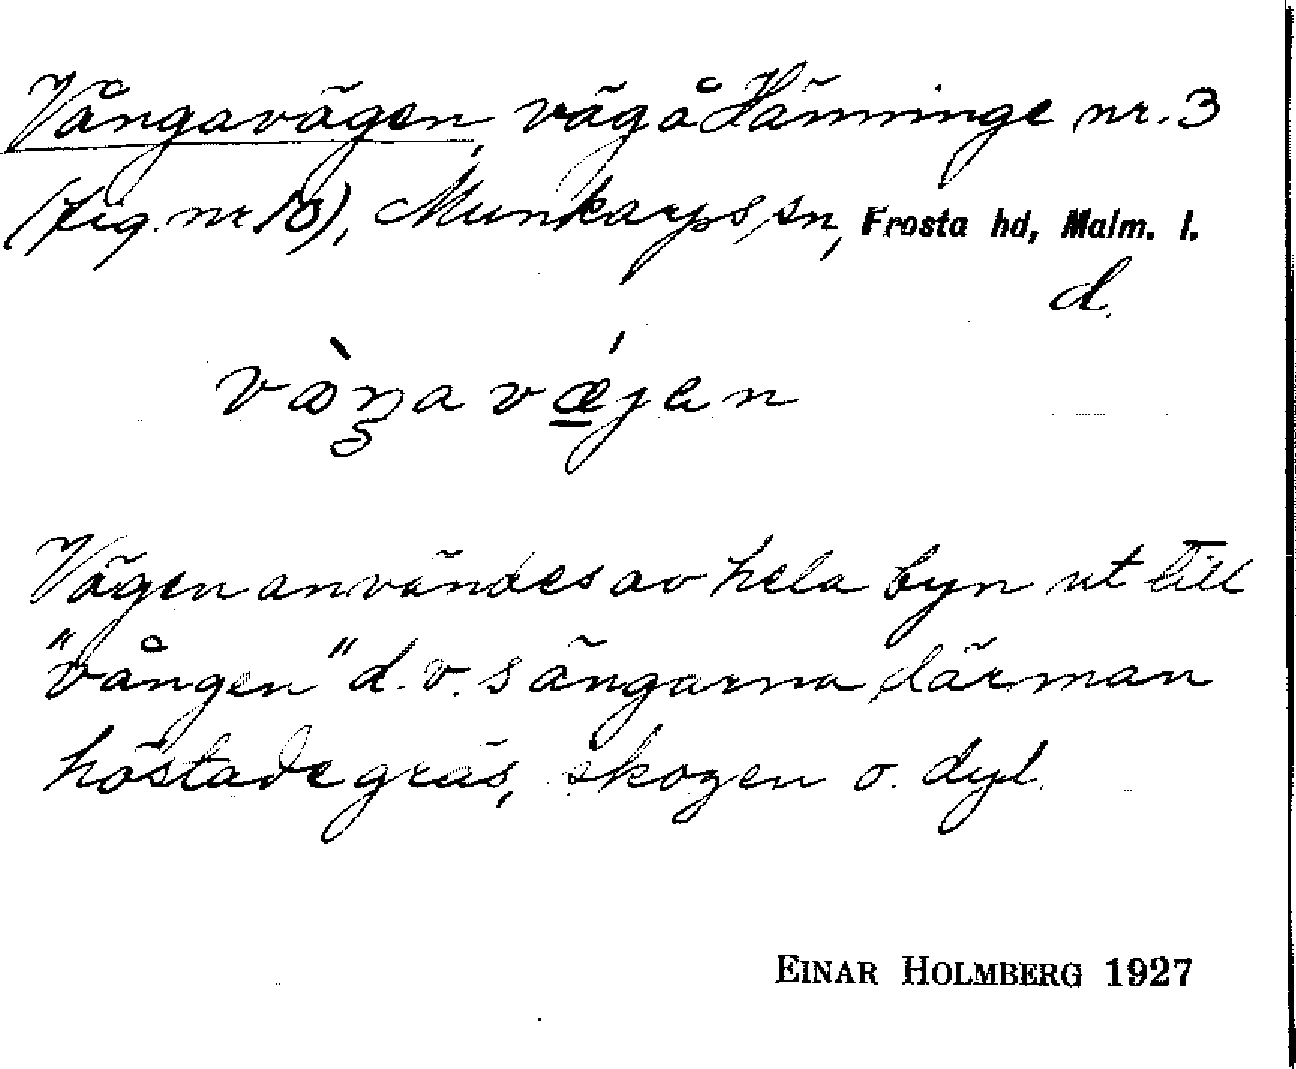 Vångavägen, väg å Hänninge nr. 3
(fig. nr 10), Munkarps sn, Frosta hd, Malm. l.
d.
Vägen användes av hela byn ut till
"vången" d. v. s ängarna där man
höstade gräs, skogen o. dyl.
EINAR HOLMBERG 1927